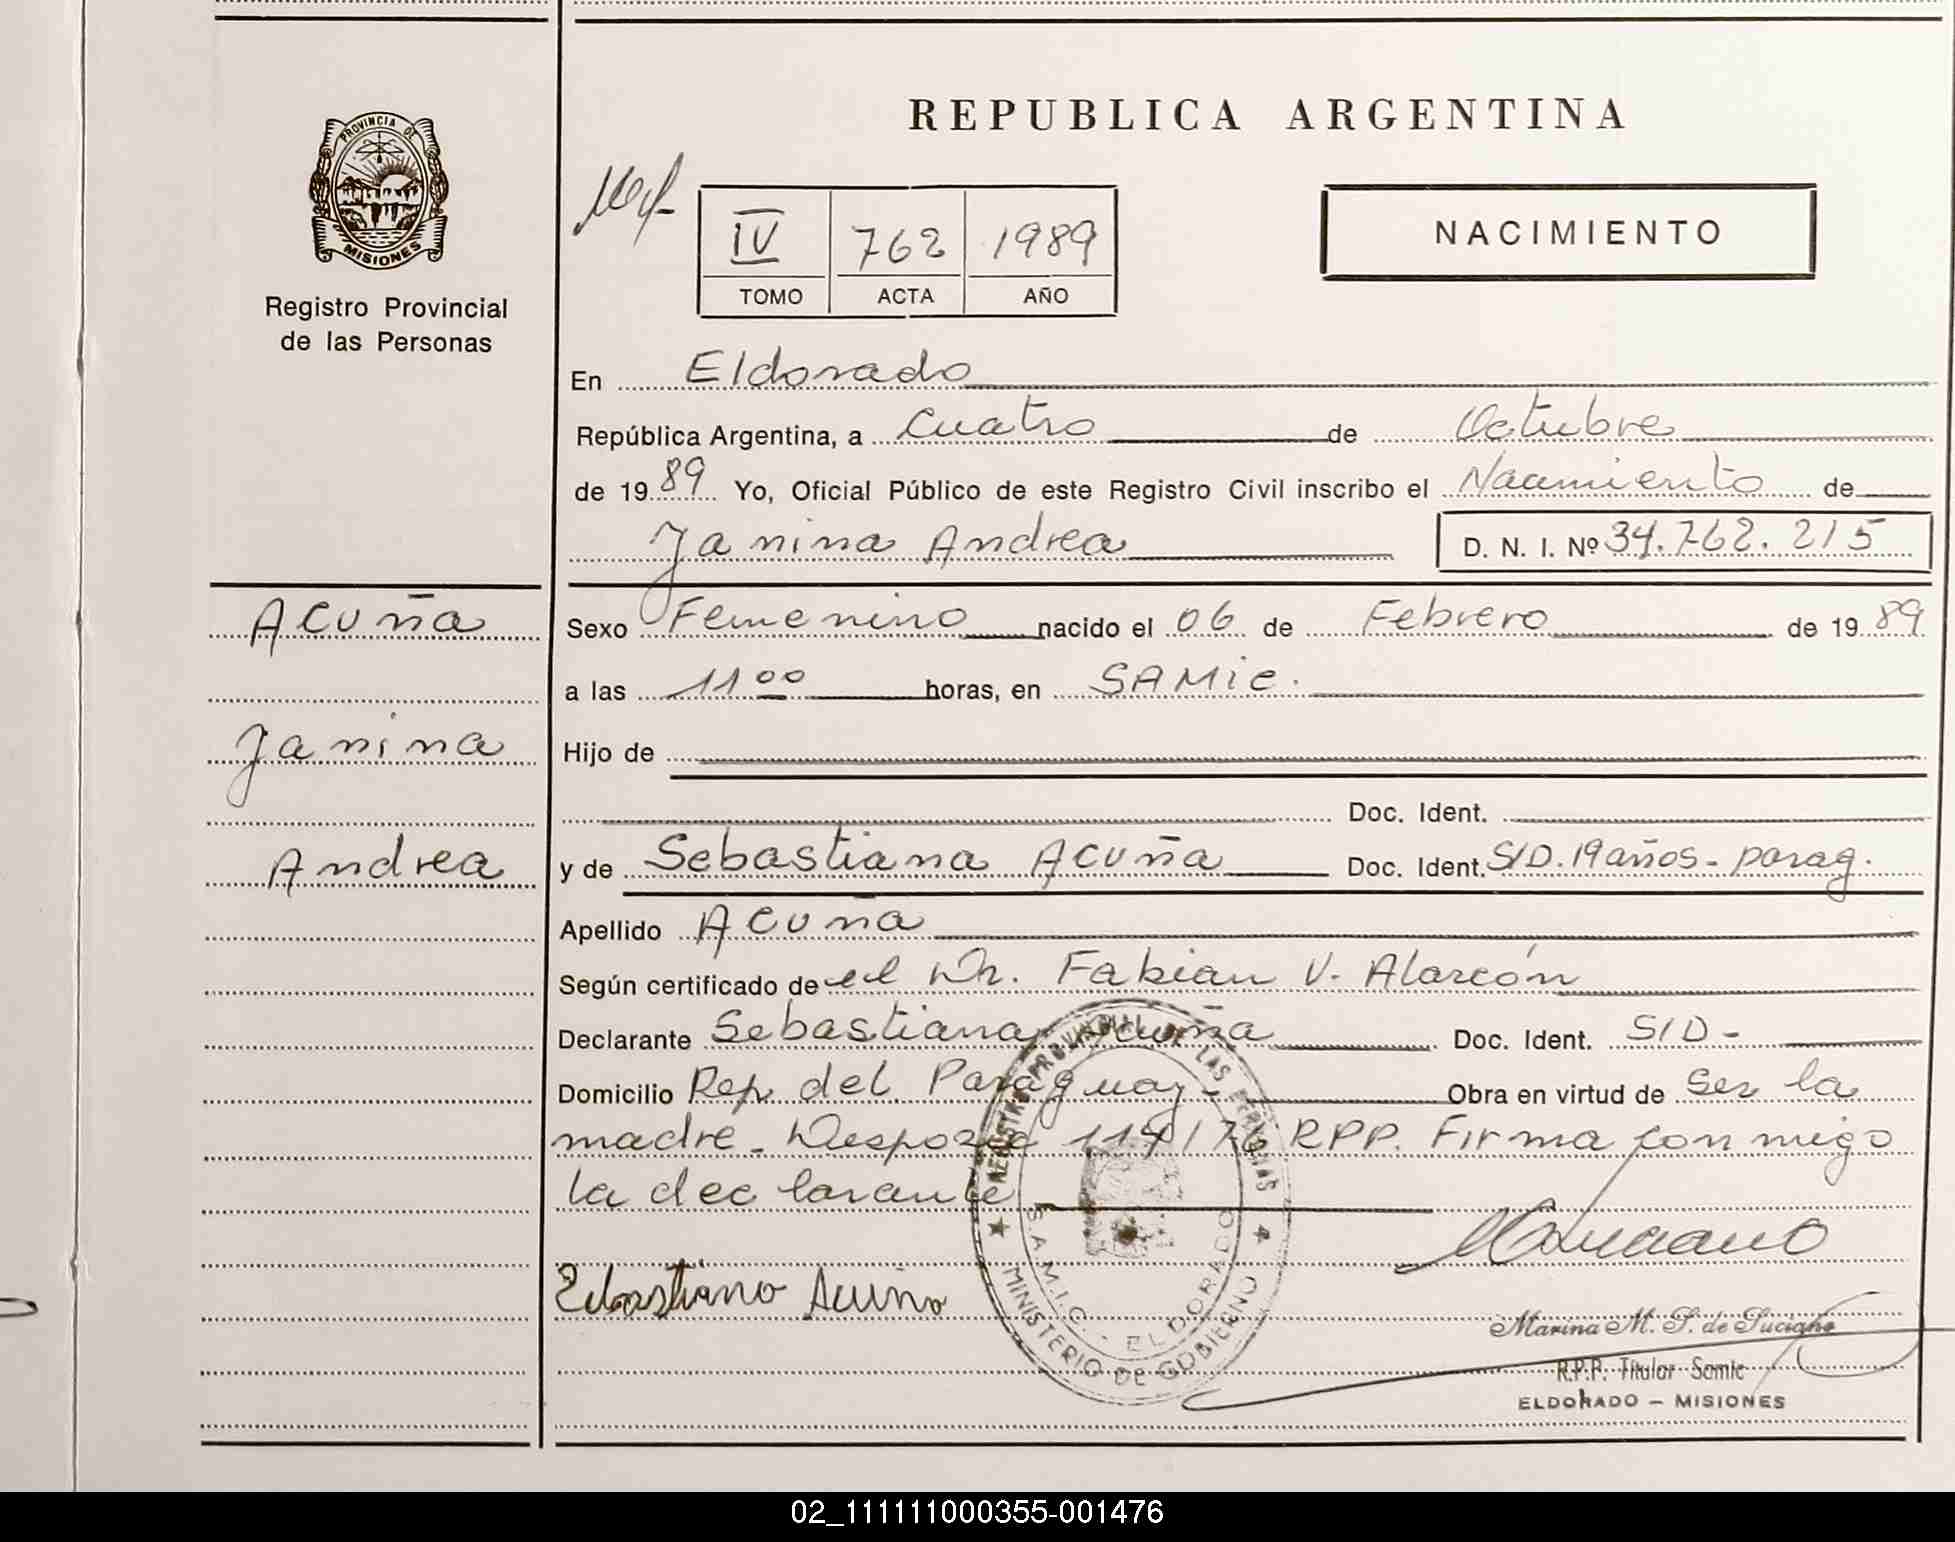 REPUBLICA ARGENTINA
PROVINCIA DE
MISIONES
Registro Provincial
de las Personas
IV 762 1989
TOMO ACTA AÑO
NACIMIENTO
En Eldorado
República Argentina, a Cuatro de Octubre
de 1989 Yo, Oficial Público de este Registro Civil inscribo el Nacimiento de
Janina Andrea D. N. I. Nº 34.762.215
Acuña
Janina
Andrea
Sexo Femenino nacido el 06 de Febrero de 1989
a las 11 00 horas, en SAMic.
Hijo de
Doc. Ident.
y de Sebastiana Acuña Doc. Ident. S/D. 19 años - parag.
Apellido Acuña
Según certificado de el Dr. Fabian V. Alarcón
Declarante Sebastiana Acuña Doc. Ident. S/D-
Domicilio Rep. del Paraguay- Obra en virtud de ser la
madre - Desposic 114/76 RPP. Firma conmigo
la declarante
REGISTRO PROVINCIAL DE LAS PERSONAS
S.A.M.I.C. - ELDORADO
MINISTERIO DE GOBIERNO
Sebastiana Acuña
Marina M. S. de Luciano
R.P.P. Titular Samic
ELDORADO - MISIONES
02_111111000355-001476